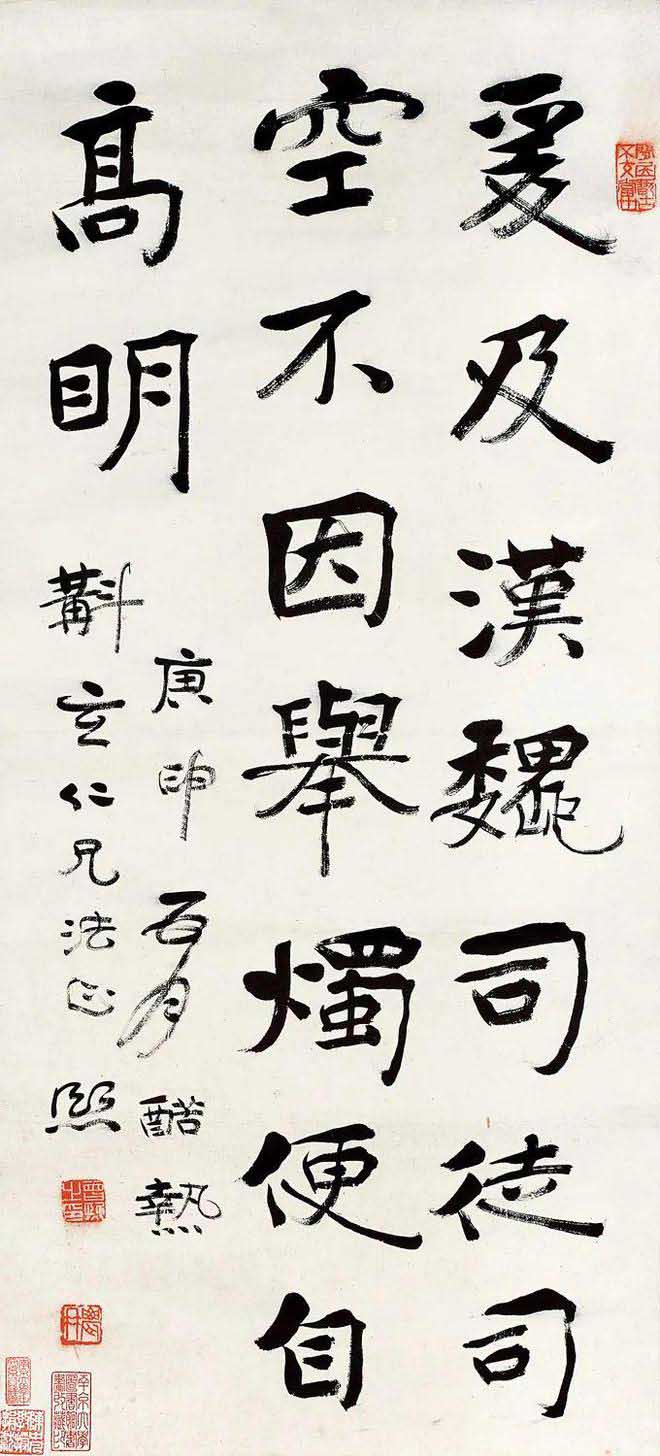 爰及漢魏司徒司
空不因舉燭便自
髙眀
庚申五月酷熱
斠玄仁兄法正 熙
曾熙之印